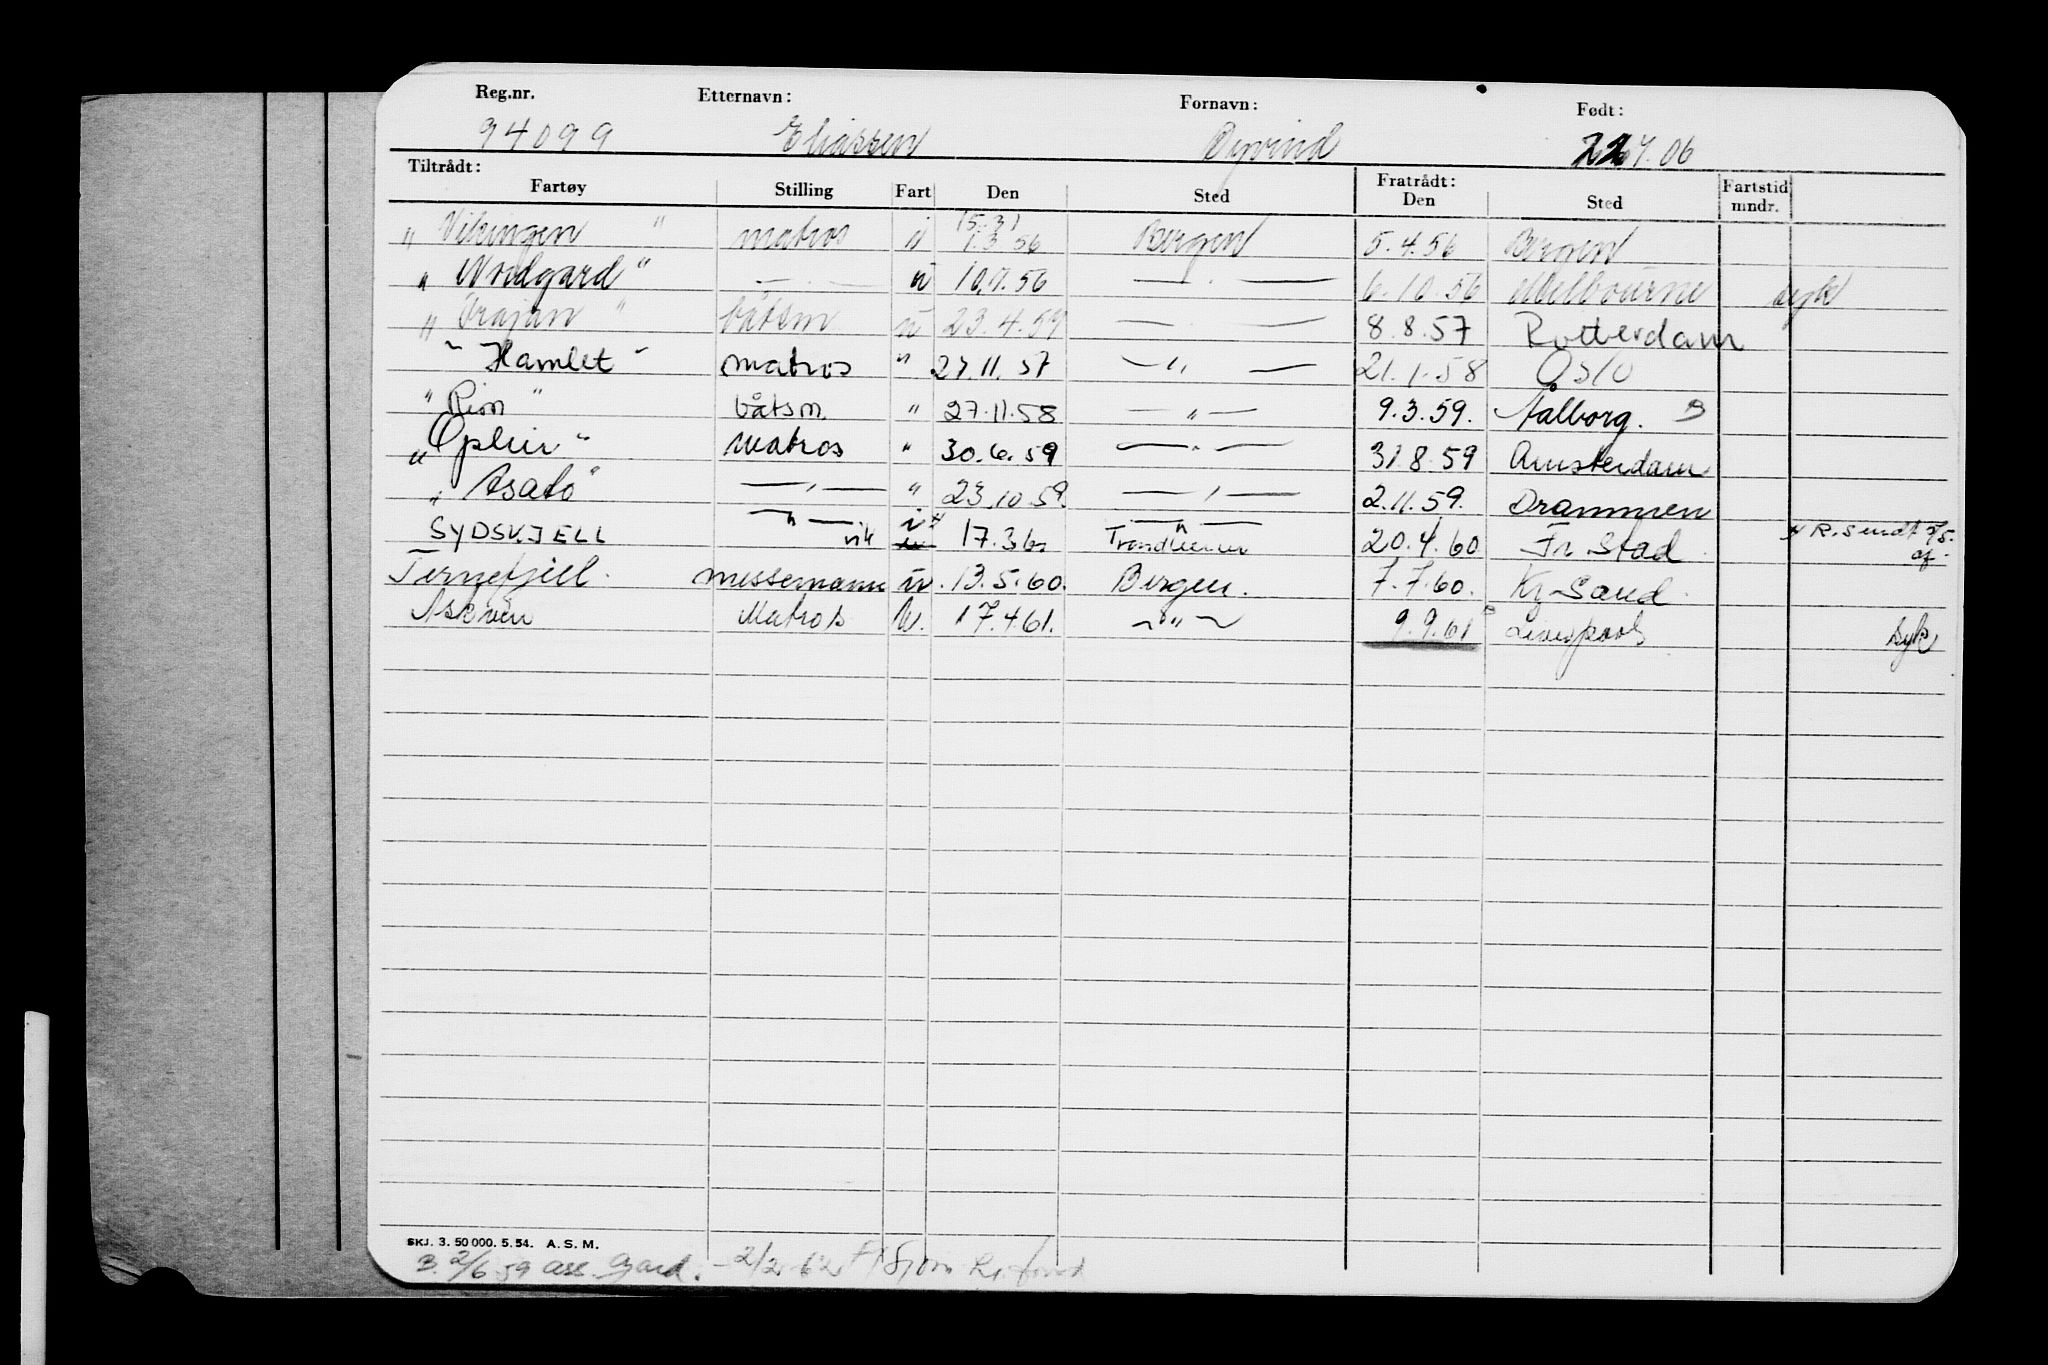 Reg.nr. Etternavn: Fornavn: Født:
94099 Eliassen Øyvind 22.7.06
Tiltrådt: Fratrådt:
Fartøy Stilling Fart Den Sted Den Sted Fartstid mndr.
(5.3)
" Vikingen " matros u 1.3 56 Bergen 5.4.56 Bergen
" Nordgard " — . — u 10.7.56 — . — 6.10.56 Melbourne syk
" Trajan " båtsm u 23.4.57 — . — 8.8.57 Rotterdam
" Hamlet " matros " 27.11.57 — " — 21.1.58 Oslo
" Rim " båtsm. " 27.11.58 — " — 9.3.59. Aalborg. B
" Ophir " matros " 30.6.59 — " — 31.8.59 Amsterdam
" Asato " — " — " 23.10.59. — " — 2.11.59. Drammen
SYDSKJELL — " — vik i 17.3.60 Trondheim 20.4.60 Fr.stad R. Sendt
Ternefjell. messemann u. 13.5.60. Bergen. 7.7.60. Kr. Sand.
Askvin Matros u. 17.4.61. — " — 9.9.61 Liverpool Syk
SKJ. 3. 50 000. 5. 54. A. S. M.
B. 2/6 59 ass. Gard. - 2/2. 62